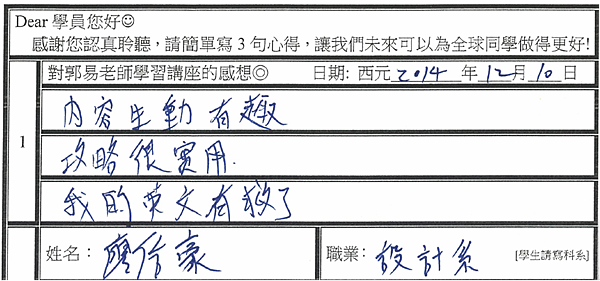 Dear 學員您好☺
感謝您認真聆聽，請簡單寫 3 句心得，讓我們未來可以為全球同學做得更好!
對郭易老師學習講座的感想◎ 日期: 西元 2014 年 12 月 10 日
1
內容生動有趣
攻略很實用.
我的英文有救了
姓名： 廖信豪 職業： 設計系 [學生請寫科系]